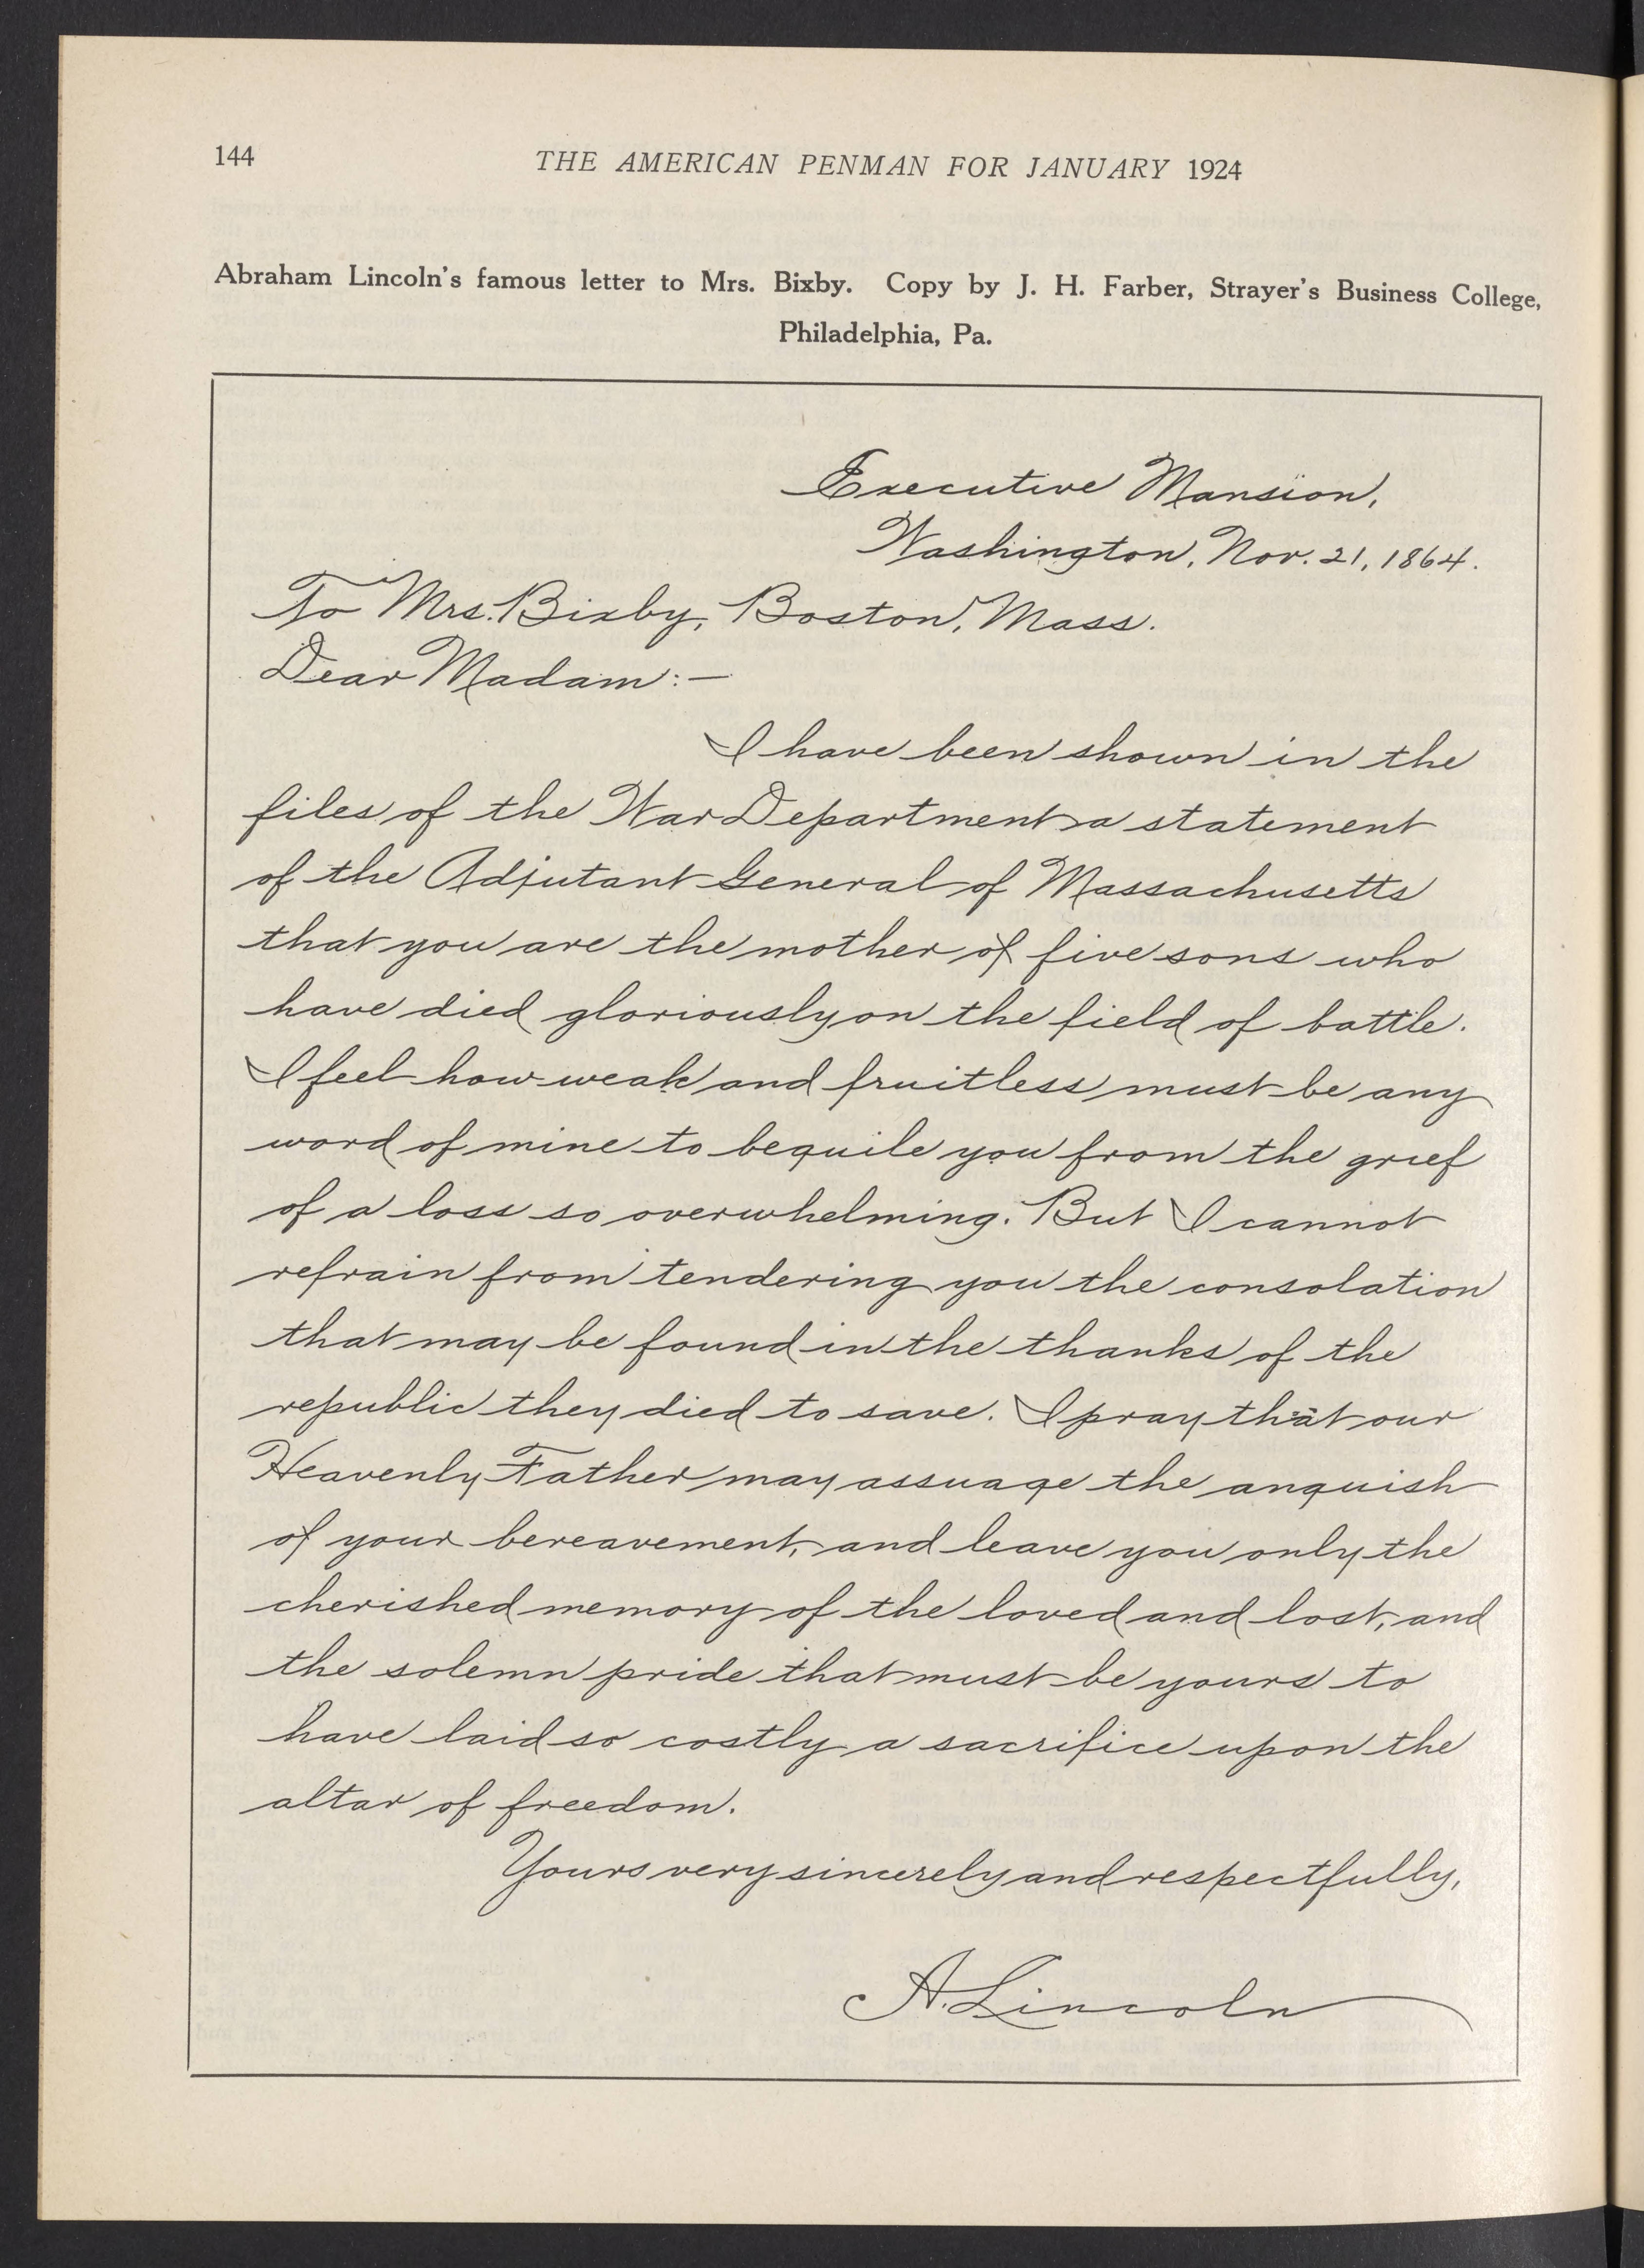 144
THE AMERICAN PENMAN FOR JANUARY 1924
Abraham Lincoln's famous letter to Mrs. Bixby. Copy by J. H. Farber, Strayer's Business College,
Philadelphia, Pa.
Executive Mansion,
Washington, Nov. 21, 1864.
To Mrs. Bixby, Boston, Mass.
Dear Madam:—
I have been shown in the
files of the War Department a statement
of the Adjutant General of Massachusetts
that you are the mother of five sons who
have died gloriously on the field of battle.
I feel how weak and fruitless must be any
word of mine to beguile you from the grief
of a loss so overwhelming. But I cannot
refrain from tendering you the consolation
that may be found in the thanks of the
republic they died to save. I pray that our
Heavenly Father may assuage the anguish
of your bereavement, and leave you only the
cherished memory of the loved and lost, and
the solemn pride that must be yours to
have laid so costly a sacrifice upon the
altar of freedom.
Yours very sincerely and respectfully,
A. Lincoln